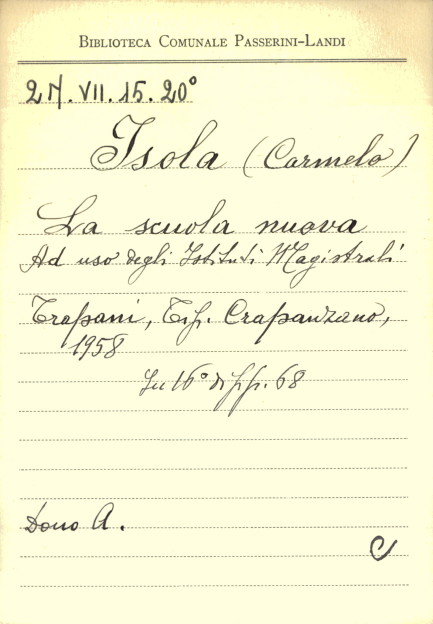 BIBLIOTECA COMUNALE PASSERINI-LANDI
2N.VII.15.20°
Isola (Carmelo)
La scuola nuova
Ad uso degli Istituti Magistrali
Trapani, Tip. Crapanzano,
1958
In 16° di pp. 68
Dono A.
C